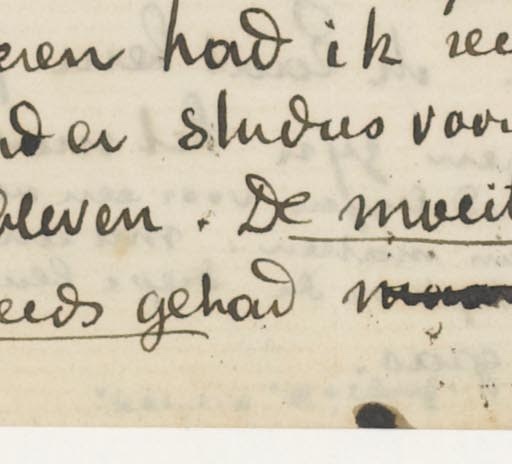 eren had ik ree
nder studies voor
bleven. De moeit
eeds gehad